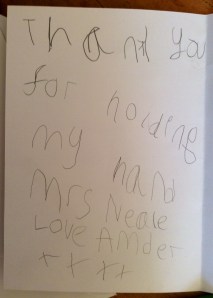 Thank you
for holding
my hand
Mrs Neale
Love Amber
x x xx